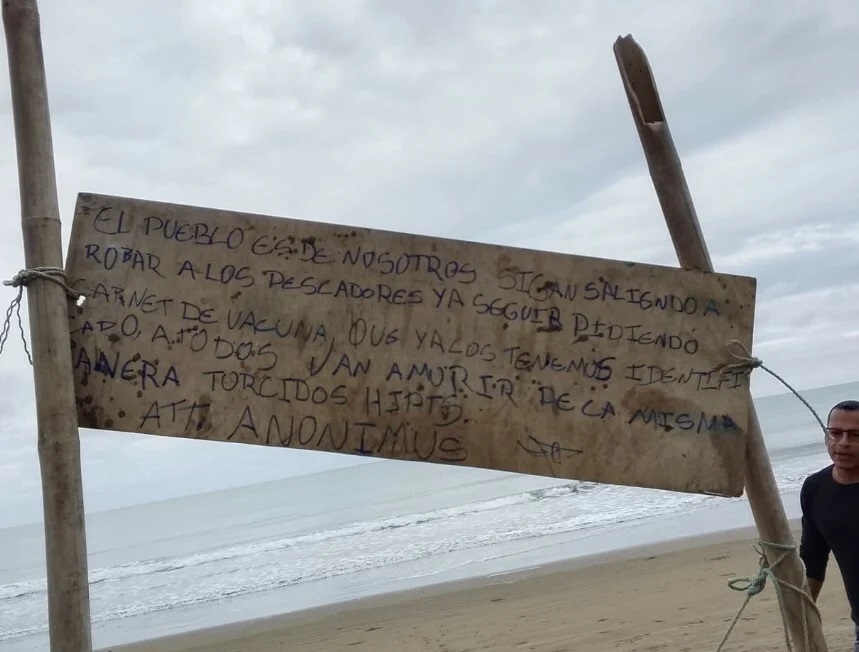 EL PUEBLO ES DE NOSOTROS SIGAN SALIENDO A
ROBAR A LOS PESCADORES YA SEGUIR PIDIENDO
CARNET DE VACUNA, QUE YA LOS TENEMOS IDENTIFI
CADO, A TODOS VAN AMURIR DE LA MISMA
MANERA TORCIDOS HIPTS.
ATT. ANONIMUS